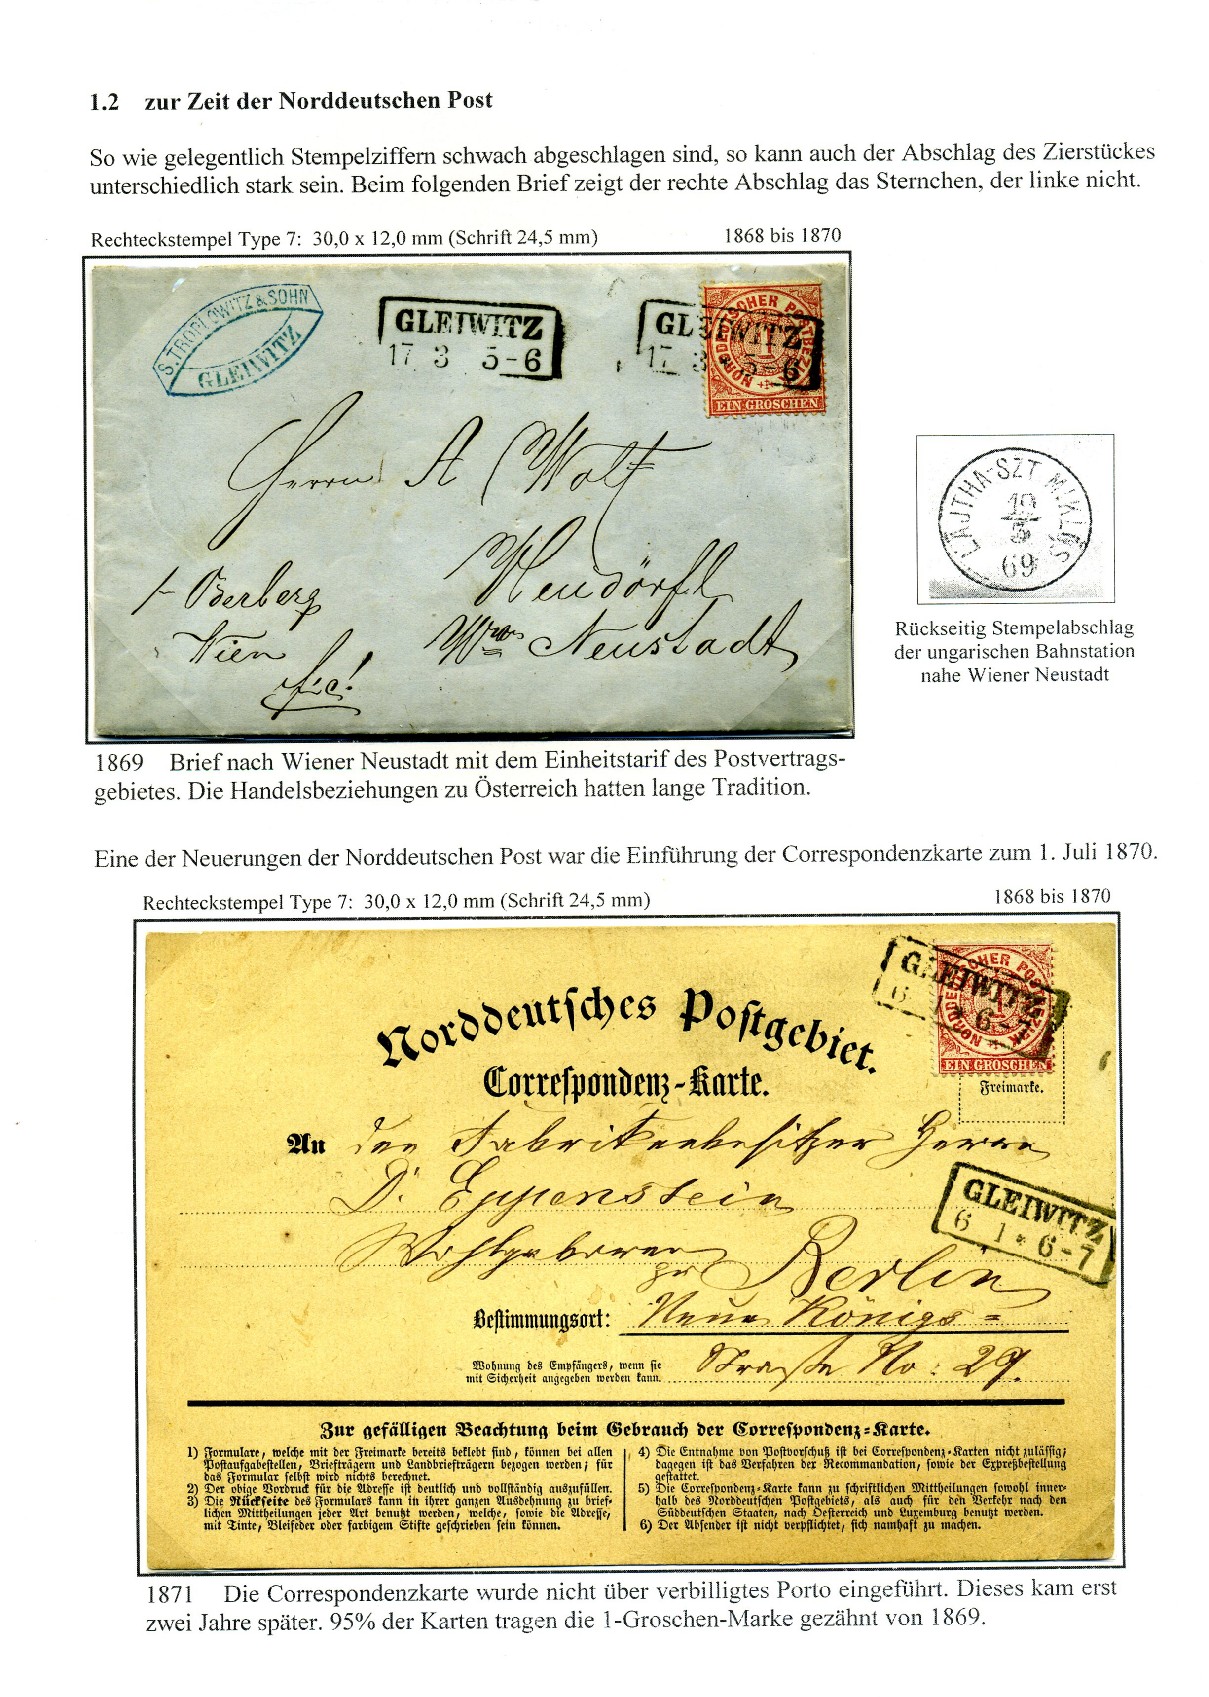 1.2 zur Zeit der Norddeutschen Post
So wie gelegentlich Stempelziffern schwach abgeschlagen sind, so kann auch der Abschlag des Zierstückes
unterschiedlich stark sein. Beim folgenden Brief zeigt der rechte Abschlag das Sternchen, der linke nicht.
Rechteckstempel Type 7: 30,0 x 12,0 mm (Schrift 24,5 mm) 1868 bis 1870
S. TROPLOWITZ & SOHN
GLEIWITZ
GLEIWITZ
17 3 5-6
GLEIWITZ
17 3 * 5-6
NORDDEUTSCHER POSTBEZIRK
1
EIN GROSCHEN
Herrn A Wolf
Neudörfl
Wr Neustadt
Oderberg
Wien
LAJTHA-SZT MIKLÓS
19
3
69
Rückseitig Stempelabschlag
der ungarischen Bahnstation
nahe Wiener Neustadt
1869 Brief nach Wiener Neustadt mit dem Einheitstarif des Postvertrags-
gebietes. Die Handelsbeziehungen zu Österreich hatten lange Tradition.
Eine der Neuerungen der Norddeutschen Post war die Einführung der Correspondenzkarte zum 1. Juli 1870.
Rechteckstempel Type 7: 30,0 x 12,0 mm (Schrift 24,5 mm) 1868 bis 1870
GLEIWITZ
6 1 * 6-7
NORDDEUTSCHER POSTBEZIRK
1
EIN GROSCHEN
Freimarke.
Norddeutsches Postgebiet.
Correspondenz-Karte.
An den Fabrikenbesitzer Herrn
D. Eppenstein
Wohlgeboren
zu Berlin
GLEIWITZ
6 1 * 6-7
Bestimmungsort: Neue Königs=
Wohnung des Empfängers, wenn sie
mit Sicherheit angegeben werden kann.
Straße No: 29.
Zur gefälligen Beachtung beim Gebrauch der Correspondenz-Karte.
1) Formulare, welche mit der Freimarke bereits beklebt sind, können bei allen
Postaufgabestellen, Briefträgern und Landbriefträgern bezogen werden; für
das Formular selbst wird nichts berechnet.
2) Der obige Vordruck für die Adresse ist deutlich und vollständig auszufüllen.
3) Die Rückseite des Formulars kann in ihrer ganzen Ausdehnung zu brief-
lichen Mittheilungen jeder Art benutzt werden, welche, sowie die Adresse,
mit Tinte, Bleifeder oder farbigem Stifte geschrieben sein können.
4) Die Entnahme von Postvorschuß ist bei Correspondenz-Karten nicht zulässig;
dagegen ist das Verfahren der Recommandation, sowie der Expreßbestellung
gestattet.
5) Die Correspondenz-Karte kann zu schriftlichen Mittheilungen sowohl inner-
halb des Norddeutschen Postgebiets, als auch für den Verkehr nach den
Süddeutschen Staaten, nach Oesterreich und Luxemburg benutzt werden.
6) Der Absender ist nicht verpflichtet, sich namhaft zu machen.
1871 Die Correspondenzkarte wurde nicht über verbilligtes Porto eingeführt. Dieses kam erst
zwei Jahre später. 95% der Karten tragen die 1-Groschen-Marke gezähnt von 1869.